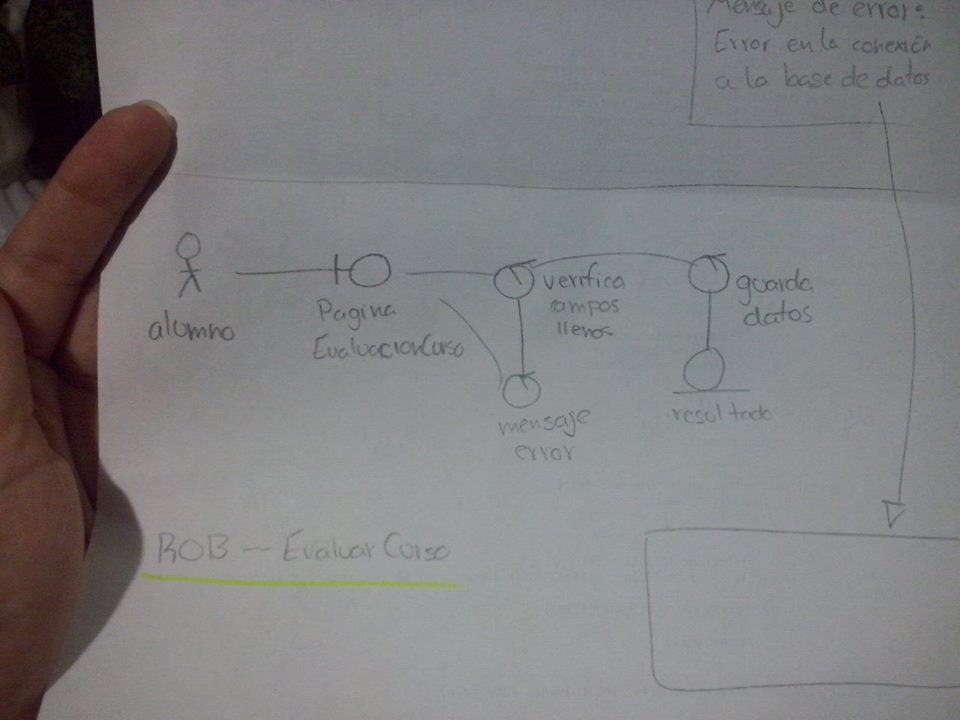 Mensaje de error:
Error en la conexión
a la base de datos
alumno
Pagina
EvaluacionCurso
verifica
campos
llenos
guarda
datos
mensaje
error
resultado
ROB — Evaluar Curso